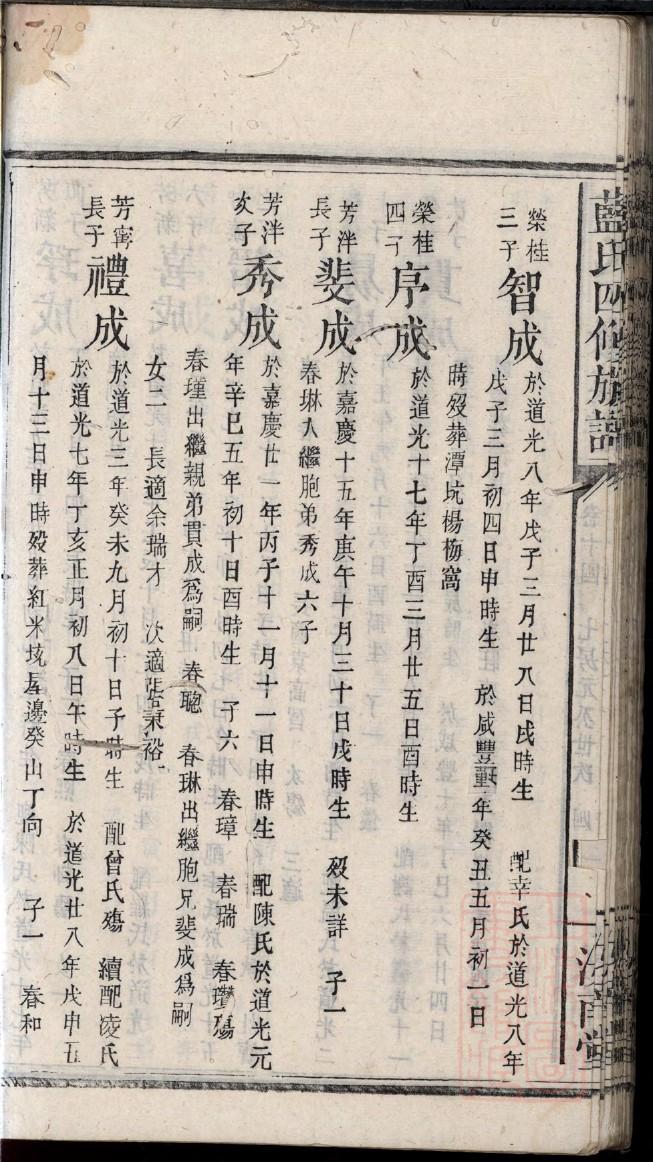 藍氏四修族譜
榮桂
三子
智成
於道光八年戊子三月廿八日戌時生 配幸氏於道光八年
戊子三月初四日申時生 於咸豐 年癸丑五月初一日
時歿葬潭坑楊梅窩
榮桂
四子
序成
於道光十七年丁酉三月廿五日酉時生
芳泮
長子
斐成
於嘉慶十五年庚午十月三十日戌時生 歿未詳 子一
春琳入繼胞弟秀成六子
芳泮
次子
秀成
於嘉慶廿一年丙子十一月十一日申時生 配陳氏於道光元
年辛巳五年初十日酉時生 子六 春璋 春瑞 春瓚殤
春瑾出繼親弟貫成爲嗣 春聰 春琳出繼胞兄斐成爲嗣
女二 長適余瑞才 次適 秉裕
芳寗
長子
禮成
於道光三年癸未九月初十日子時生 配曾氏殤 續配凌氏
於道光七年丁亥正月初八日午時生 於道光廿八年戊申五
月十三日申時歿葬紅米坑屋邊癸山丁向 子一 春和